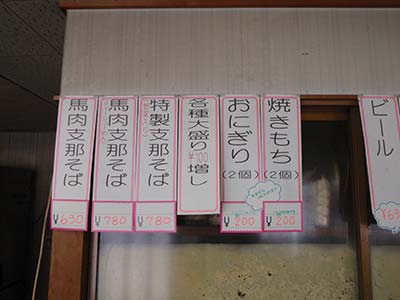 馬肉支那そば
¥630
馬肉支那そば
¥780
特製支那そば
¥780
各種大盛り¥100増し
おにぎり(2個)
¥200
焼きもち(2個)
¥200
ビール
¥63